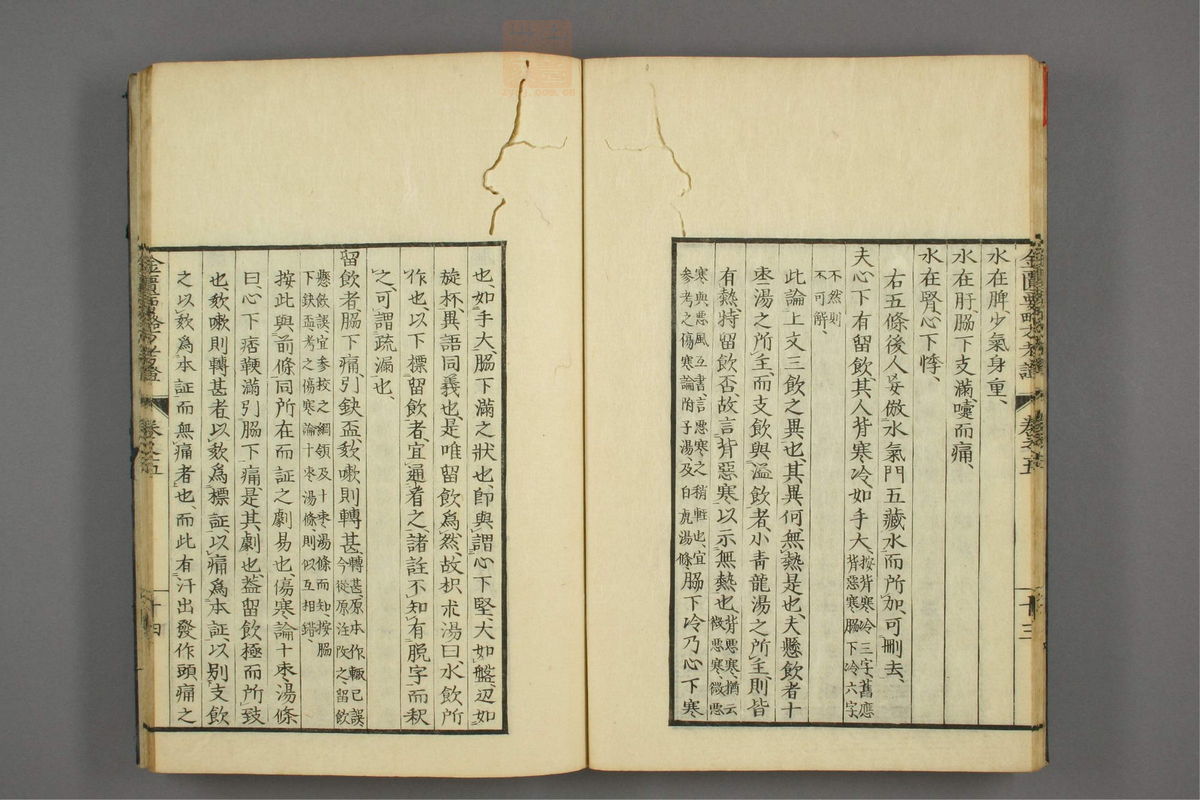 水在脾、少氣身重、
水在肝、脇下支滿、嚏而痛、
水在腎、心下悸、
右五條、後人妄倣水氣門五藏水而所加、可刪去、
夫心下有留飲、其人背寒冷、如手大、按背寒冷三字、舊應背惡寒脇下冷六字、
不然則不可解、
此論上文三飲之異也、其異何、無熱是也、夫懸飲者十
棗湯之所主、而支飲與溢飲者、小青龍湯之所主、則皆
有熱、特留飲否、故言背惡寒以示無熱也、背惡寒、猶云微惡寒、微惡
寒與惡風互書、言惡寒之稍輕也、宜參考之傷寒論附子湯、及白虎湯條、脇下冷乃心下寒
金匱要略方考證 卷之五 十三
也、如手大、脇下滿之狀也、卽與謂心下堅、大如盤、邊如
旋杯、異語同義也、是唯留飲爲然、故枳朮湯曰水飲所
作也、以下標留飲者、宜通看之、諸註不知有脫字而釈
之、可謂疏漏也、
留飲者、脇下痛引缺盆、欬嗽則轉甚、轉甚原本作輒已誤今從原注改之、留飲
懸飲誤、宜參校之綱領及十棗湯條而知、按脇下缺盆、考之傷寒論十棗湯條、則似互相錯、
按此與前條同所在而証之劇易也、傷寒論十棗湯條
曰、心下痞鞕滿、引脇下痛、是其劇也、蓋留飲極而所致
也、欬嗽則轉甚者、以欬爲標証、以痛爲本証、以別支飲
之以欬爲本証而無痛者也、而此有汗出發作頭痛之
金匱要略方考證 卷之五 十四